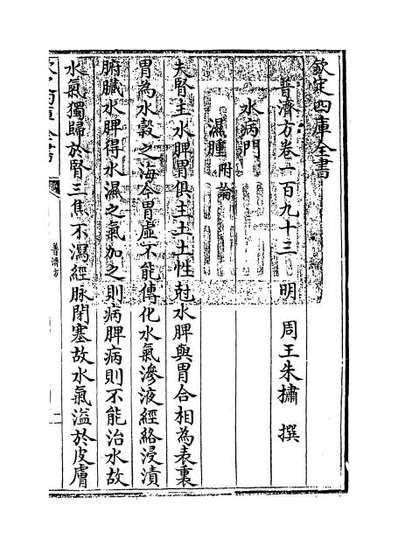 欽定四庫全書
普濟方卷一百九十三 明 周王朱橚 撰
水病門
濕腫附論
夫腎主水脾胃俱主土土性尅水脾與胃合相為表裏
胃為水榖之海今胃虛不能傳化水氣滲液經絡浸漬
腑臟水脾得水濕之氣加之則病脾病則不能治水故
水氣獨歸於腎三焦不瀉經脉閉塞故水氣溢於皮膚
普濟方